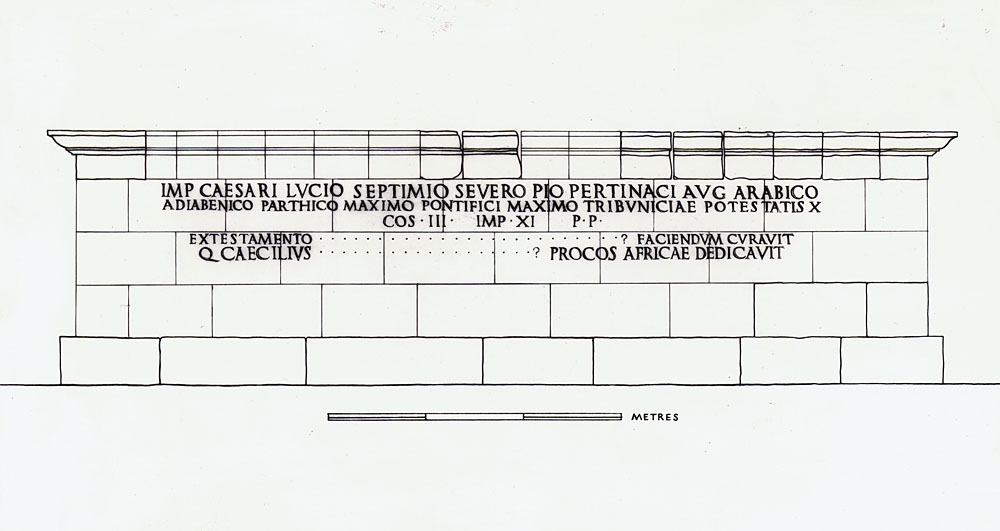 IMP CAESARI LVCIO SEPTIMIO SEVERO PIO PERTINACI AVG ARABICO
ADIABENICO PARTHICO MAXIMO PONTIFICI MAXIMO TRIBVNICIAE POTESTATIS X
COS · III · IMP · XI P · P ·
EX TESTAMENTO . . . . . . . . . . . . . . . . . . . . . . . . . . . . . . . . . . ? FACIENDVM CVRAVIT
Q CAECILIVS . . . . . . . . . . . . . . . . . . . . . . . . ? PROCOS AFRICAE DEDICAVIT
METRES